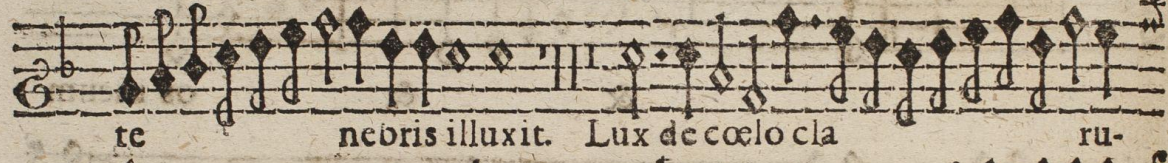 te nebris illuxit. Lux de cœlo cla ru-